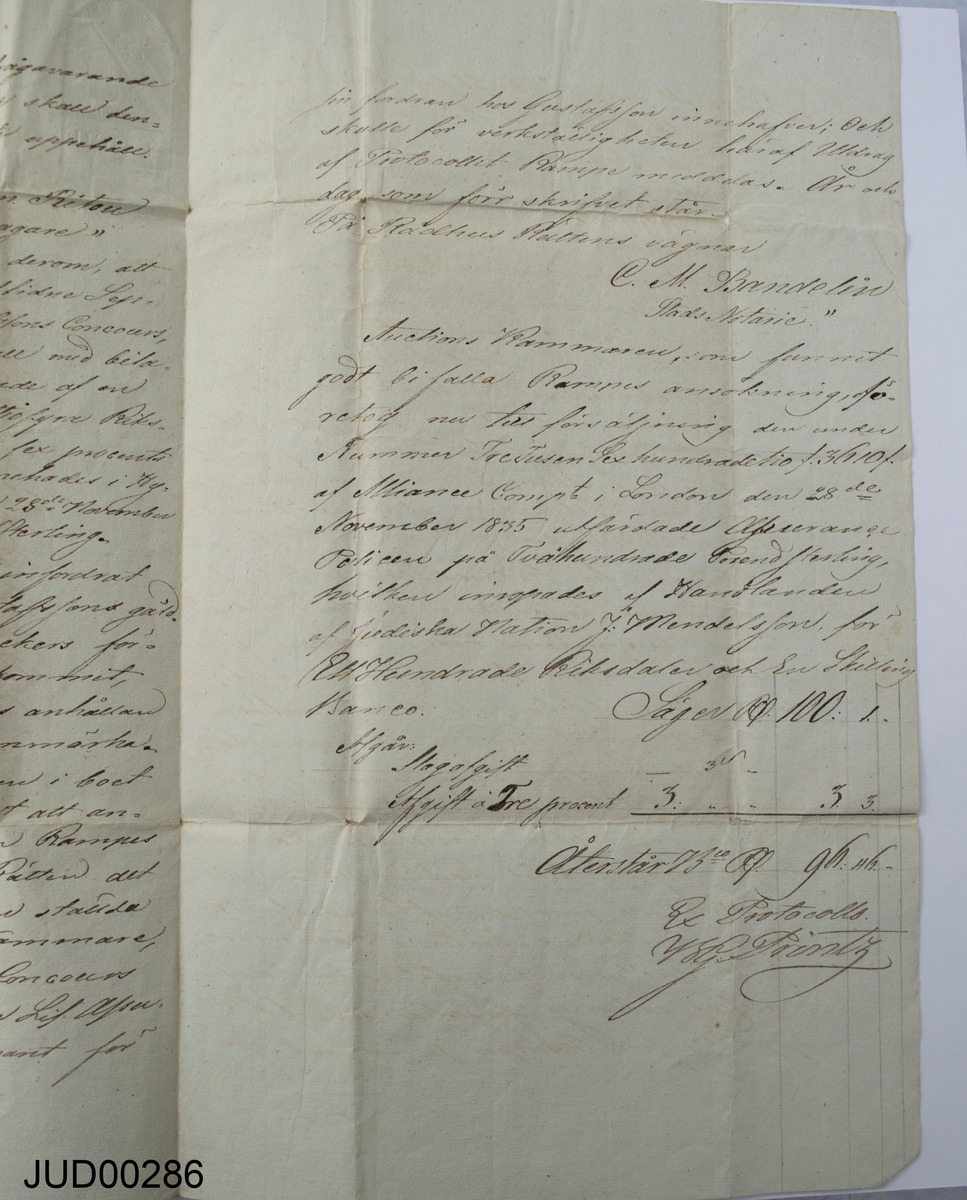 ägavarande
skall den=
uppehåll.
Kiton
ägare"
derom, att
sidne Sep-
sons Concours,
med bila-
ade af en
Riks-
sex procents
nehades i Hy-
28de November
Sterling.
infordrat
Gustafssons gäld-
ekers för-
kommit,
s anhållan
anmärka-
en i boet
att an-
Kampes
Rätten det
ställda
ammare,
Concours
Lif Assu-
rant för
sin fordran hos Gustafsson innehafver; Och
skulle för verkställigheten häraf Utdrag
af Protocollet Kampe meddelas. År och
dag som förr skrifvet står.
På Rådhus Rättens vägnar
C. M. Bandelin
Stads Notarie."
Auctions Kammaren, som funnit
godt bifalla Kampes ansökning, fö-
retog nu till försäljning den under
Nummer TreTusen Sex hundradetio /:3610:/
af Alliance Compe i London den 28de
November 1835 utfärdade Assurance
Policen på Tvåhundrade Pound Sterling,
hvilken inropades af Handlanden
af Judiska Nation J: Mendelsson, för
Ett Hundrade Riksdaler och En Skilling
Banco. Säger Rd: 100: 1.-
Afgår:
Slagafgift — 3 -
Afgift à Tre procent 3: " - 3. 3.
Återstår Bco Rd. 96: 46.-
Ex Protocollo.
Printz
JUD00286